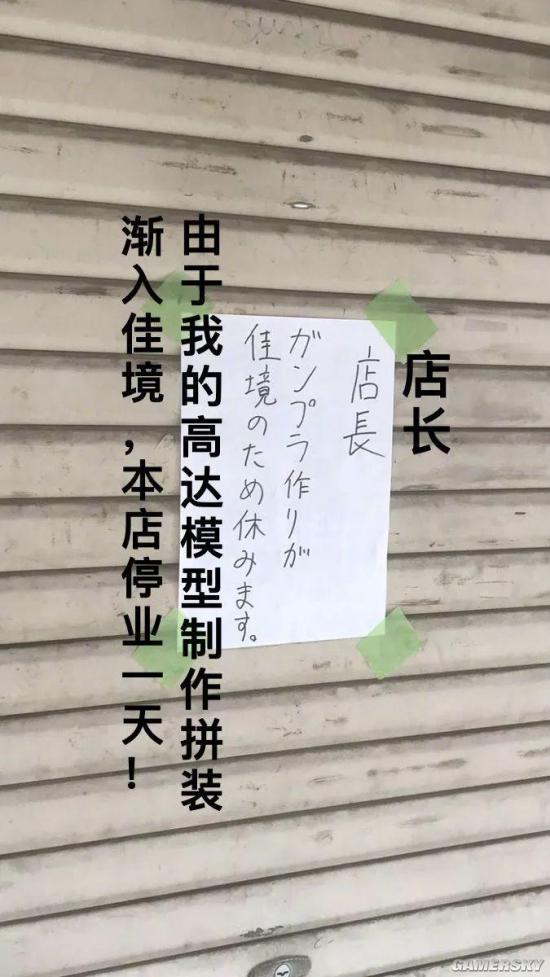 店长
店長
ガンプラ作りが
佳境のため休みます。
由于我的高达模型制作拼装
渐入佳境,本店停业一天!
GAMERSKY